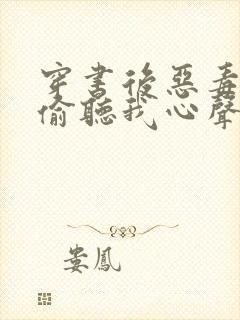 穿書後惡毒
偷聽我心聲
婁鳳